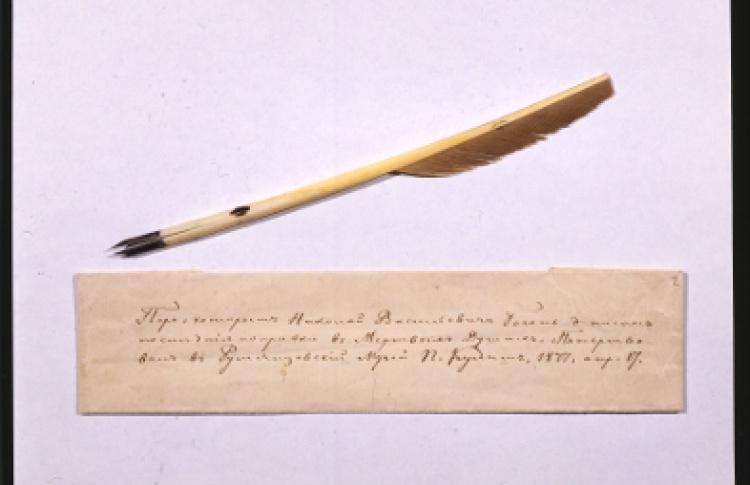 Перо, которымъ Николай Васильевичъ Гоголь писалъ
послѣднія поправки въ Мертвыхъ Душахъ. Пожертво-
валъ въ Румянцовскій Музей П. 1877, апр. 17.
2